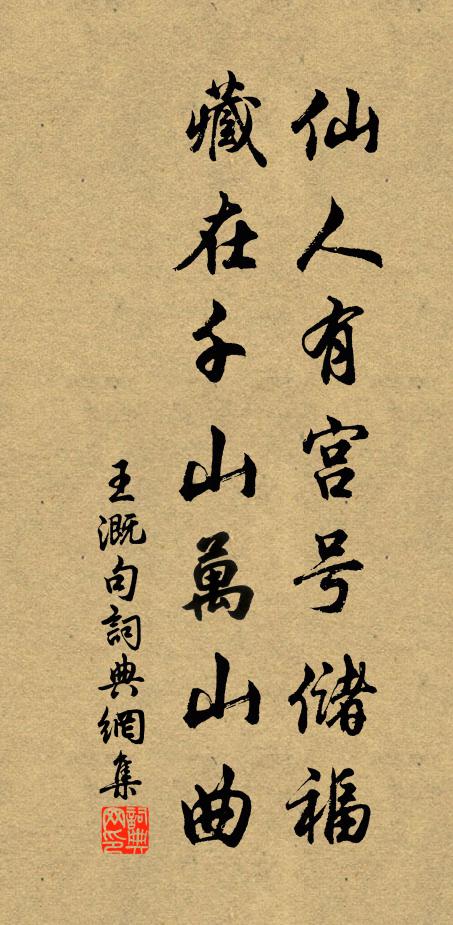 仙人有宫号储福
藏在千山萬山曲
王溉句詞典網集
詞典网印